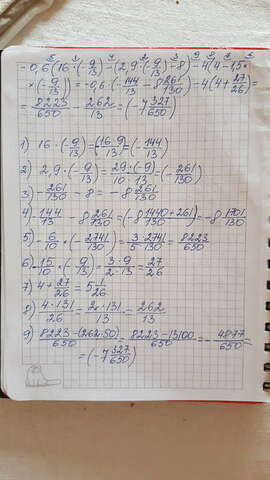 5 1 4 2 3 9 8 7 6
-0,6(16·(-9/13)-(2,9·(-9/13)-8)-4(4-1,5×
×(-9/13))=-0,6·(-144/13-8 261/130)-4(4+27/26)=
=8223/650-262/13=(-7 327/650)
1) 16·(-9/13)=(16·9/13)=(-144/13)
2) 2,9·(-9/13)=29·(-9)/10·13=(-261/130)
3) -261/130-8=-8 261/130
4) -144/13--8 261/130=(-8 1440+261/130)=-8 1701/130
5) -6/10×(-2741/130)=3·2741/5·130=8223/650
6) -15/10·(-9/13)=3·9/2·13=27/26
7) 4+27/26=5 1/26
8) 4·131/26=2·131/13=262/13
9) 8223-(262·50)/650=8223-13100/650=-4877/650=
=(-7 327/650)